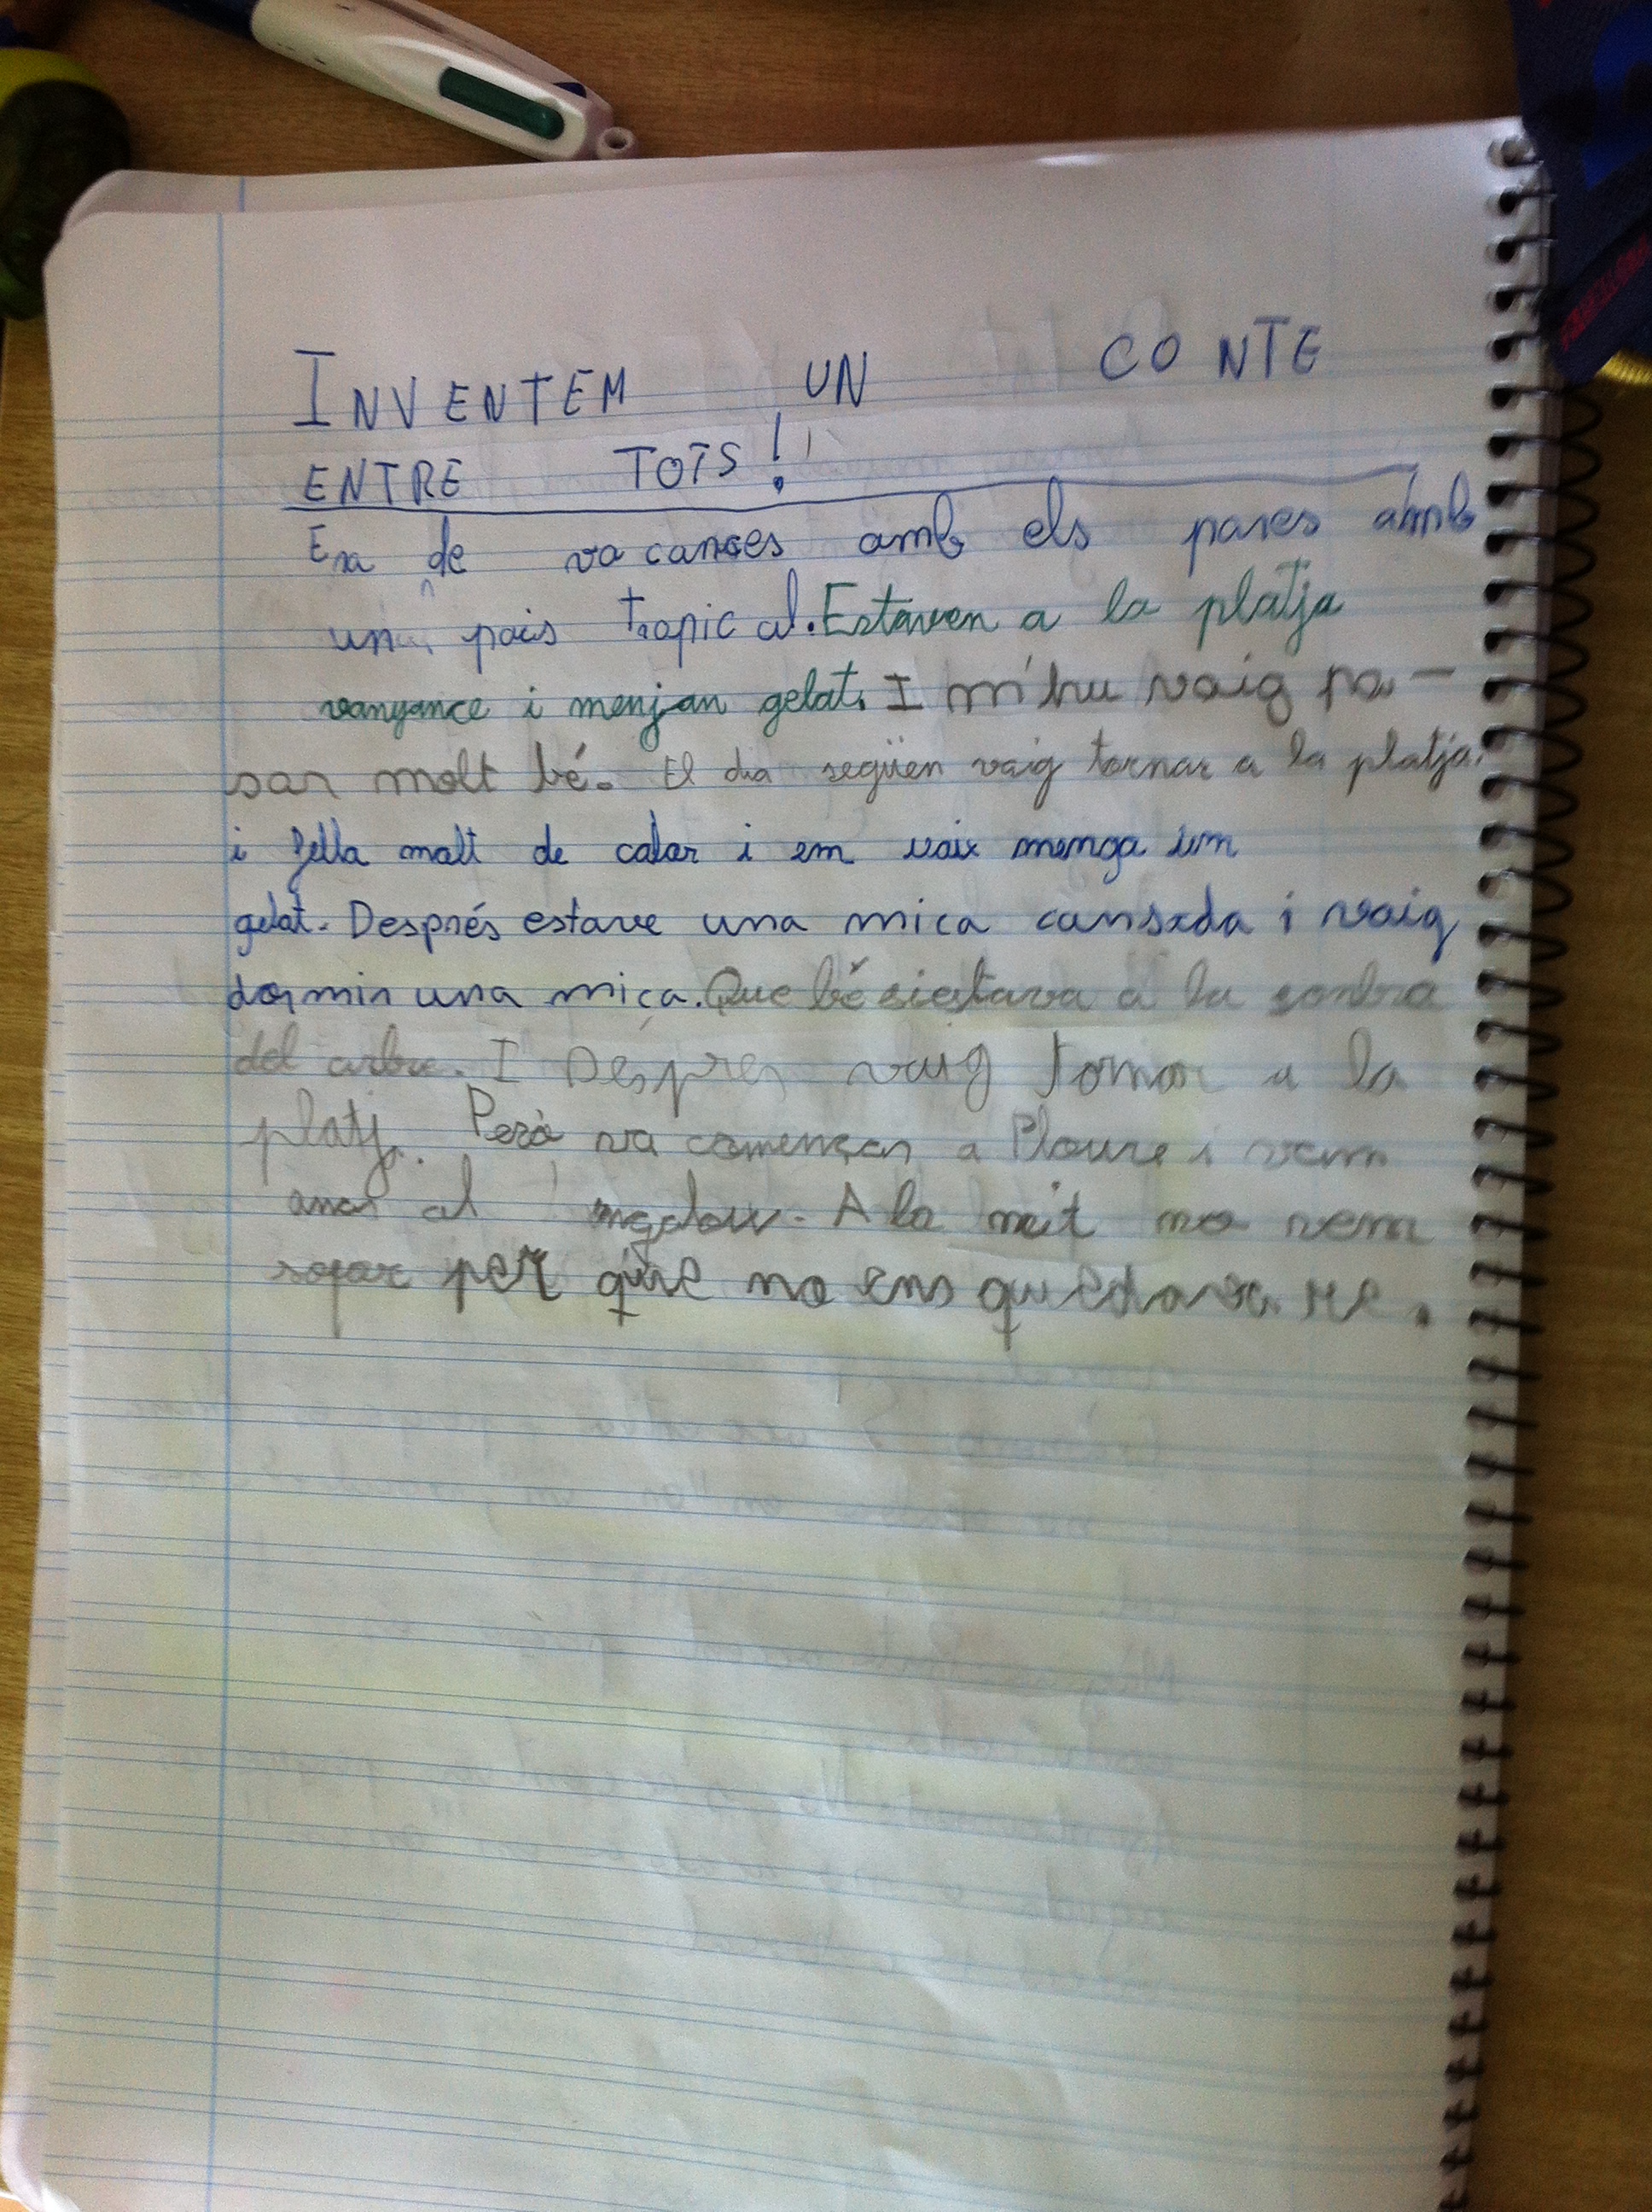 INVENTEM UN CONTE
ENTRE TOTS!
Era de vacances amb els pares amb
un pais tropical. Estaven a la platja
vanyance i menjan gelat. I m'hu vaig pa-
sar molt bé. El dia següen vaig tornar a la platja.
i fella molt de calor i em vaix menga um
gelat. Després estave una mica cansada i vaig
dormir una mica. Que bé siestava a la sonbra
del arbre. I Després vaig tornar a la
platj. Però va començar a Ploure i vam
anar al . A la nit no vem
sopar per que no ens quedava re.